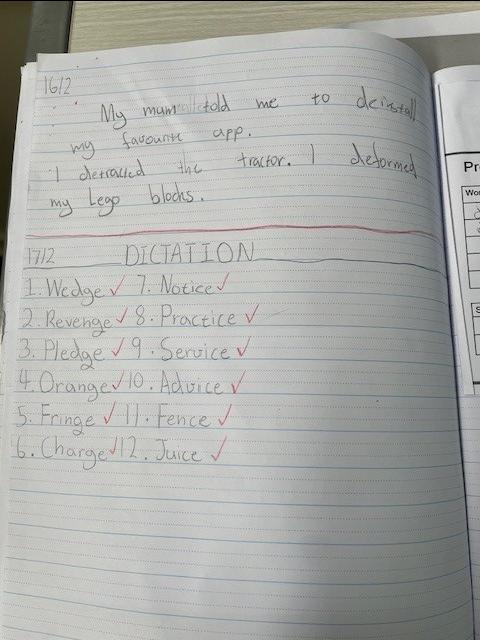 16/2
My mum told me to deinstall
my favourite app.
I detracted the tractor. I deformed
my Lego blocks.
17/2 DICTATION
1. Wedge ✓ 7. Notice ✓
2. Revenge ✓ 8. Practice ✓
3. Pledge ✓ 9. Service ✓
4. Orange ✓ 10. Advice ✓
5. Fringe ✓ 11. Fence ✓
6. Charge ✓ 12. Juice ✓
Pr